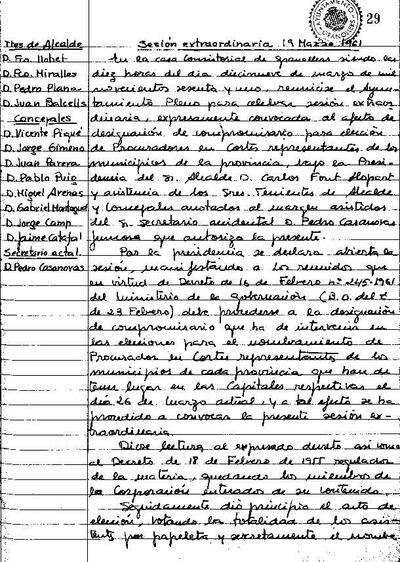 29
AYUNTAMIENTO
Ttes de Alcalde
D. Fco. Llobet
D. Fco. Miralles
D. Pedro Plana
D. Juan Balcells
Concejales
D. Vicente Piqué
D. Jorge Gimeno
D. Juan Parera
D. Pablo Puig
D. Miguel Arenas
D. Gabriel
D. Jorge Camp
D. Jaime Catafal
Secretario actal.
D. Pedro Casanovas
Sesión extraordinaria 19 Marzo 1961
En la casa Consistorial de Granollers siendo las
diez horas del dia diecinueve de marzo de mil
novecientos sesenta y uno, reunióse el Ayun-
tamiento Pleno para celebrar sesión extraor-
dinaria, expresamente convocada al efecto de
designación de compromisario para elección
de Procuradores en Cortes representantes de los
municipios de la provincia, bajo la Presi-
dencia del Sr. Alcalde D. Carlos Font Llopart
y asistencia de los Sres. Tenientes de Alcalde
y Concejales anotados al margen asistidos
del Sr. Secretario accidental D. Pedro Casanovas
que autoriza la presente.
Por la presidencia se declara abierta la
sesión, manifestando a los reunidos que
en virtud de Decreto de 16 de Febrero nº 245-1961
del Ministerio de la Gobernación (B.O. del E.
de 23 Febrero) debe procederse a la designación
de compromisario que ha de intervenir en
las elecciones para el nombramiento de
Procurador en Cortes representantes de los
municipios de cada provincia que han de
tener lugar en las Capitales respectivas el
dia 26 de marzo actual y a tal efecto se ha
procedido a convocar la presente sesión ex-
traordinaria.
Dióse lectura al expresado decreto asi como
al Decreto de 18 de Febrero de 1955 regulador
de la materia, quedando los miembros de
la Corporación enterados de su contenido.
Seguidamente dió principio el acto de
elección, votando la totalidad de los asis-
tente por papeleta y secretamente el nombre